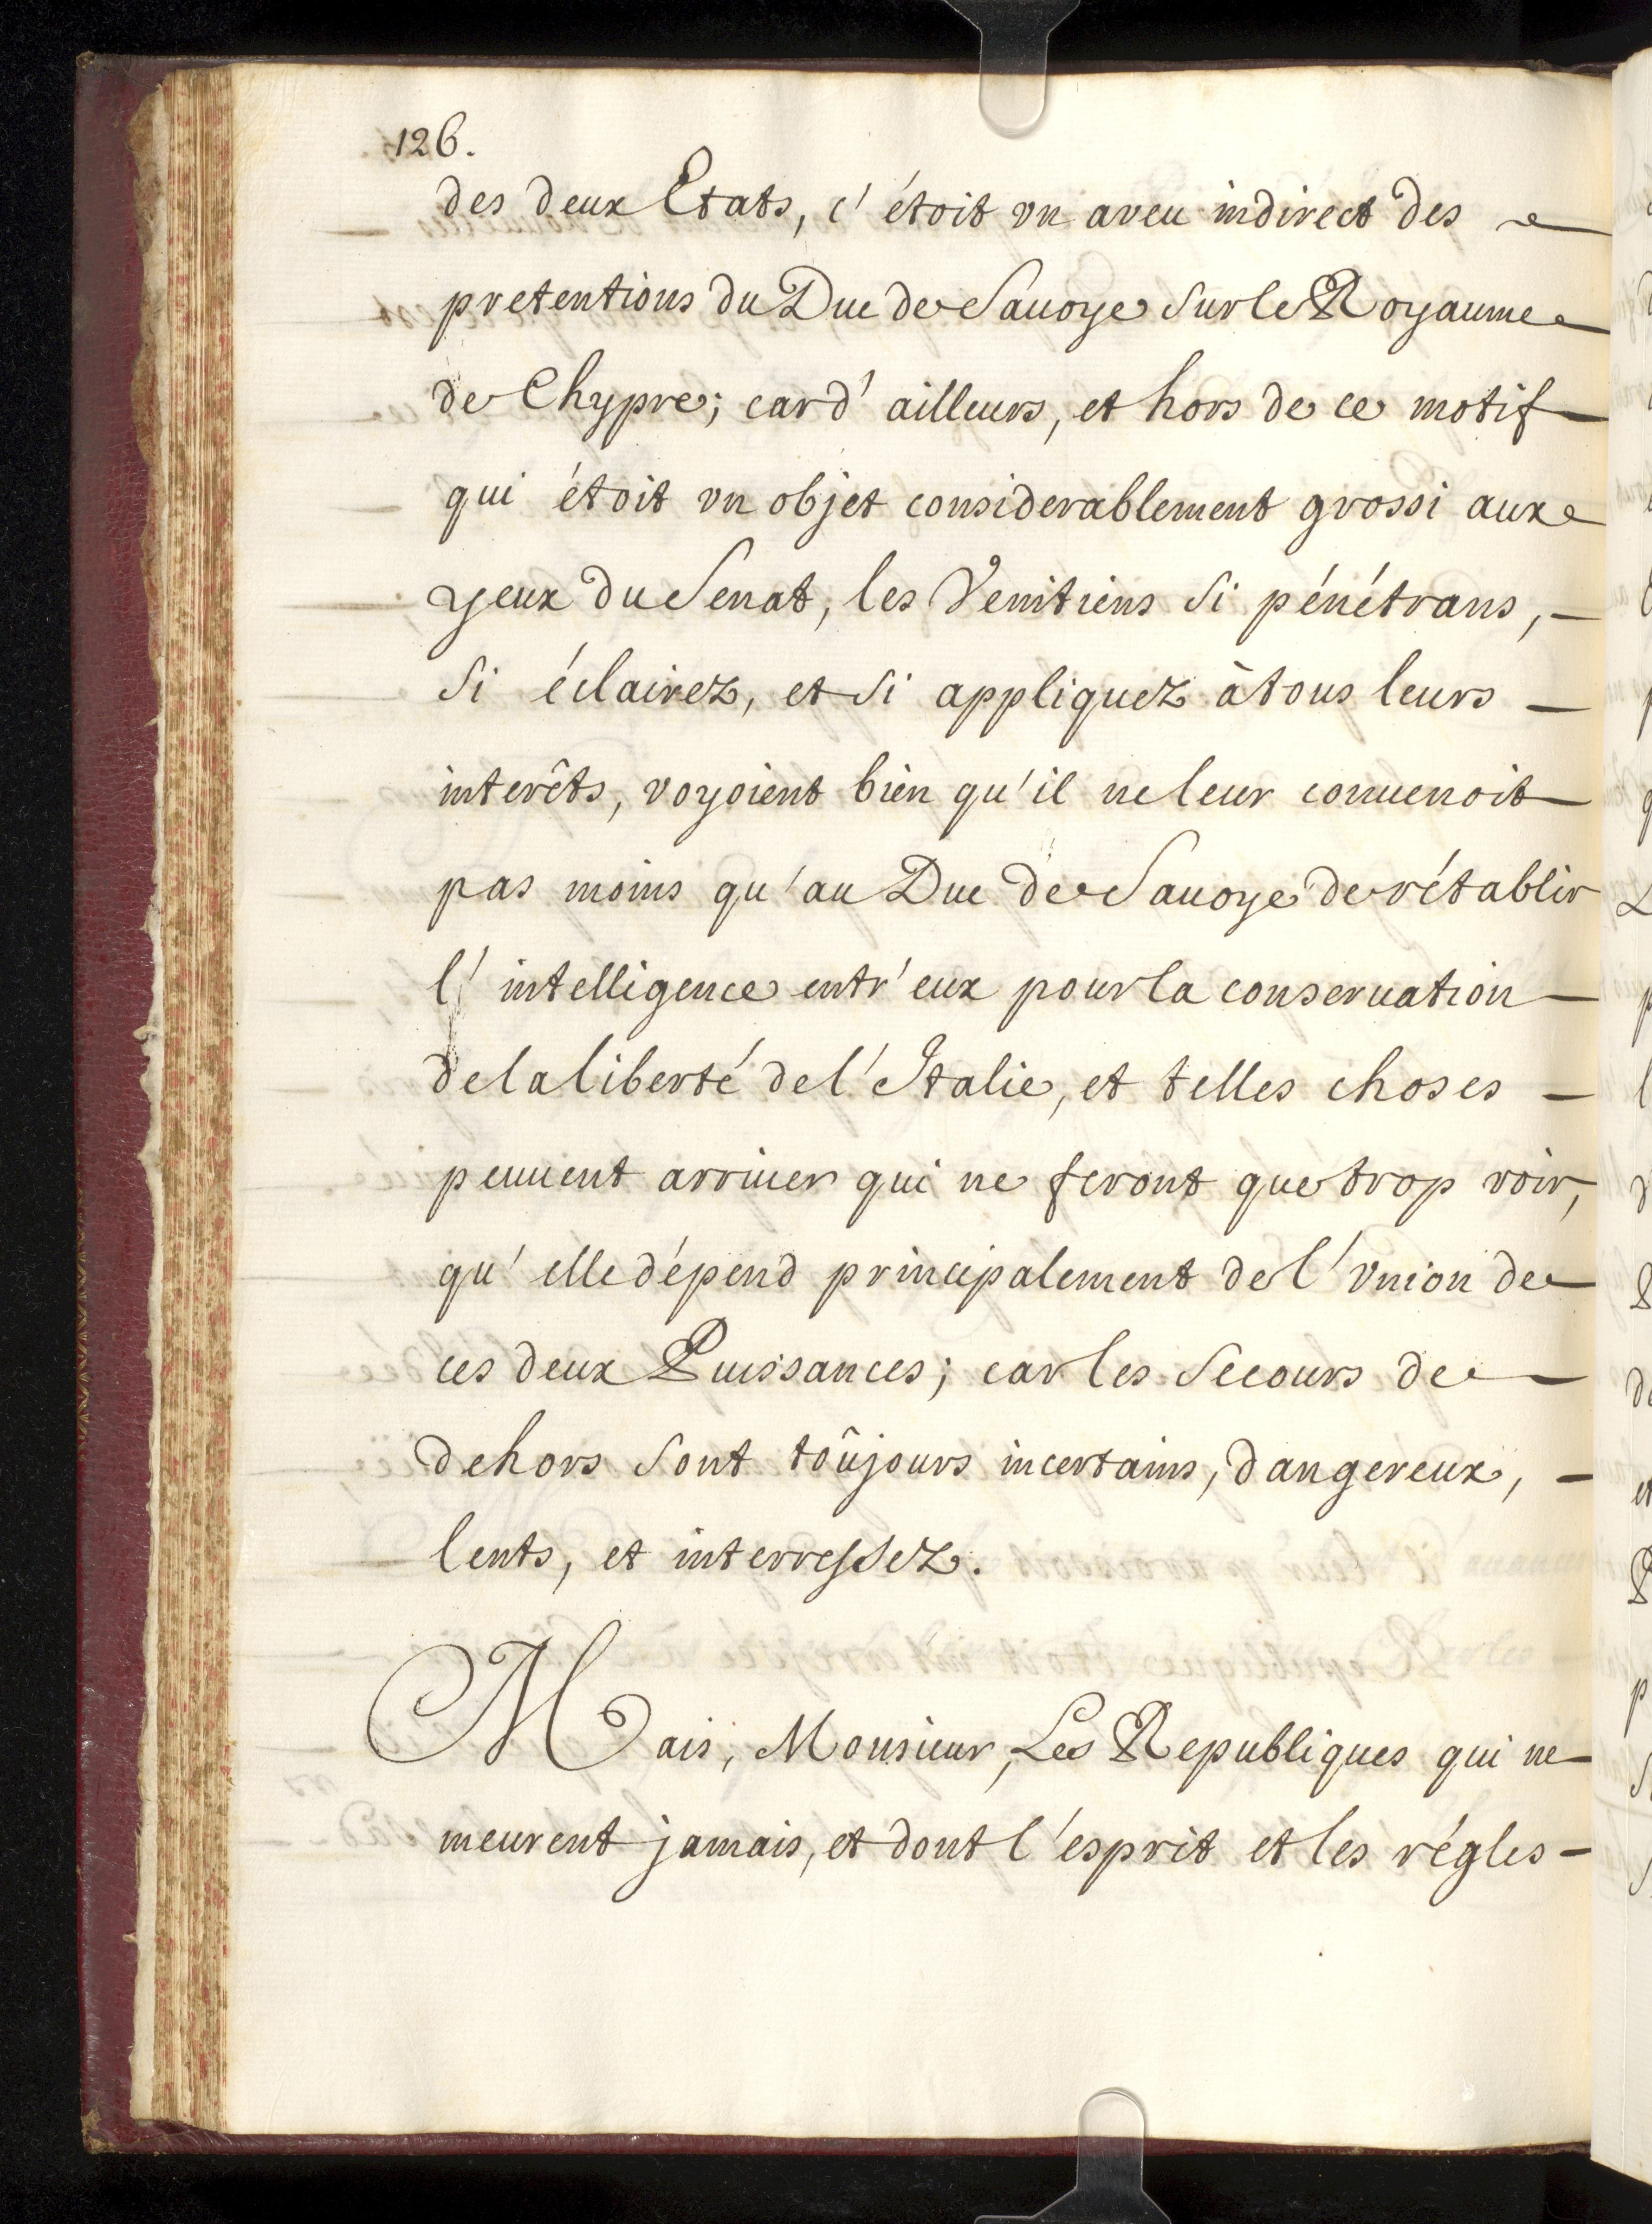 126.
des deux Etats, c'étoit vn aveu indirect des
pretentions du Duc de Sauoye sur le Royaume
de Chypre; car d'ailleurs, et hors de ce motif
qui étoit vn objet considerablement grossi aux
yeux du Senat, les Venitiens si pénétrans,
si éclairez, et si appliquez à tous leurs
interêts, voyoient bien qu'il ne leur conuenoit
pas moins qu'au Duc de Sauoye de rétablir
l'intelligence entr'eux pour la conseruation
de la liberté de l'Italie, et telles choses
peuuent arriuer qui ne feront que trop voir,
qu'elle dépend principalement de l'vnion de
ces deux Puissances; car les secours de
dehors sont toûjours incertains, dangereux,
lents, et interressez.
Mais, Monsieur, Les Republiques qui ne
meurent jamais, et dont l'esprit et les régles